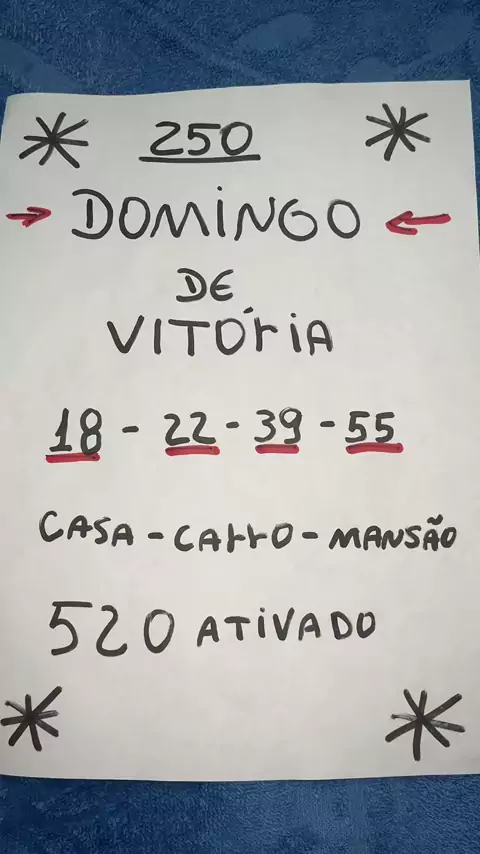 250
DOMINGO
DE
VITÓRIA
18 - 22 - 39 - 55
CASA - CARRO - MANSÃO
520 ATIVADO